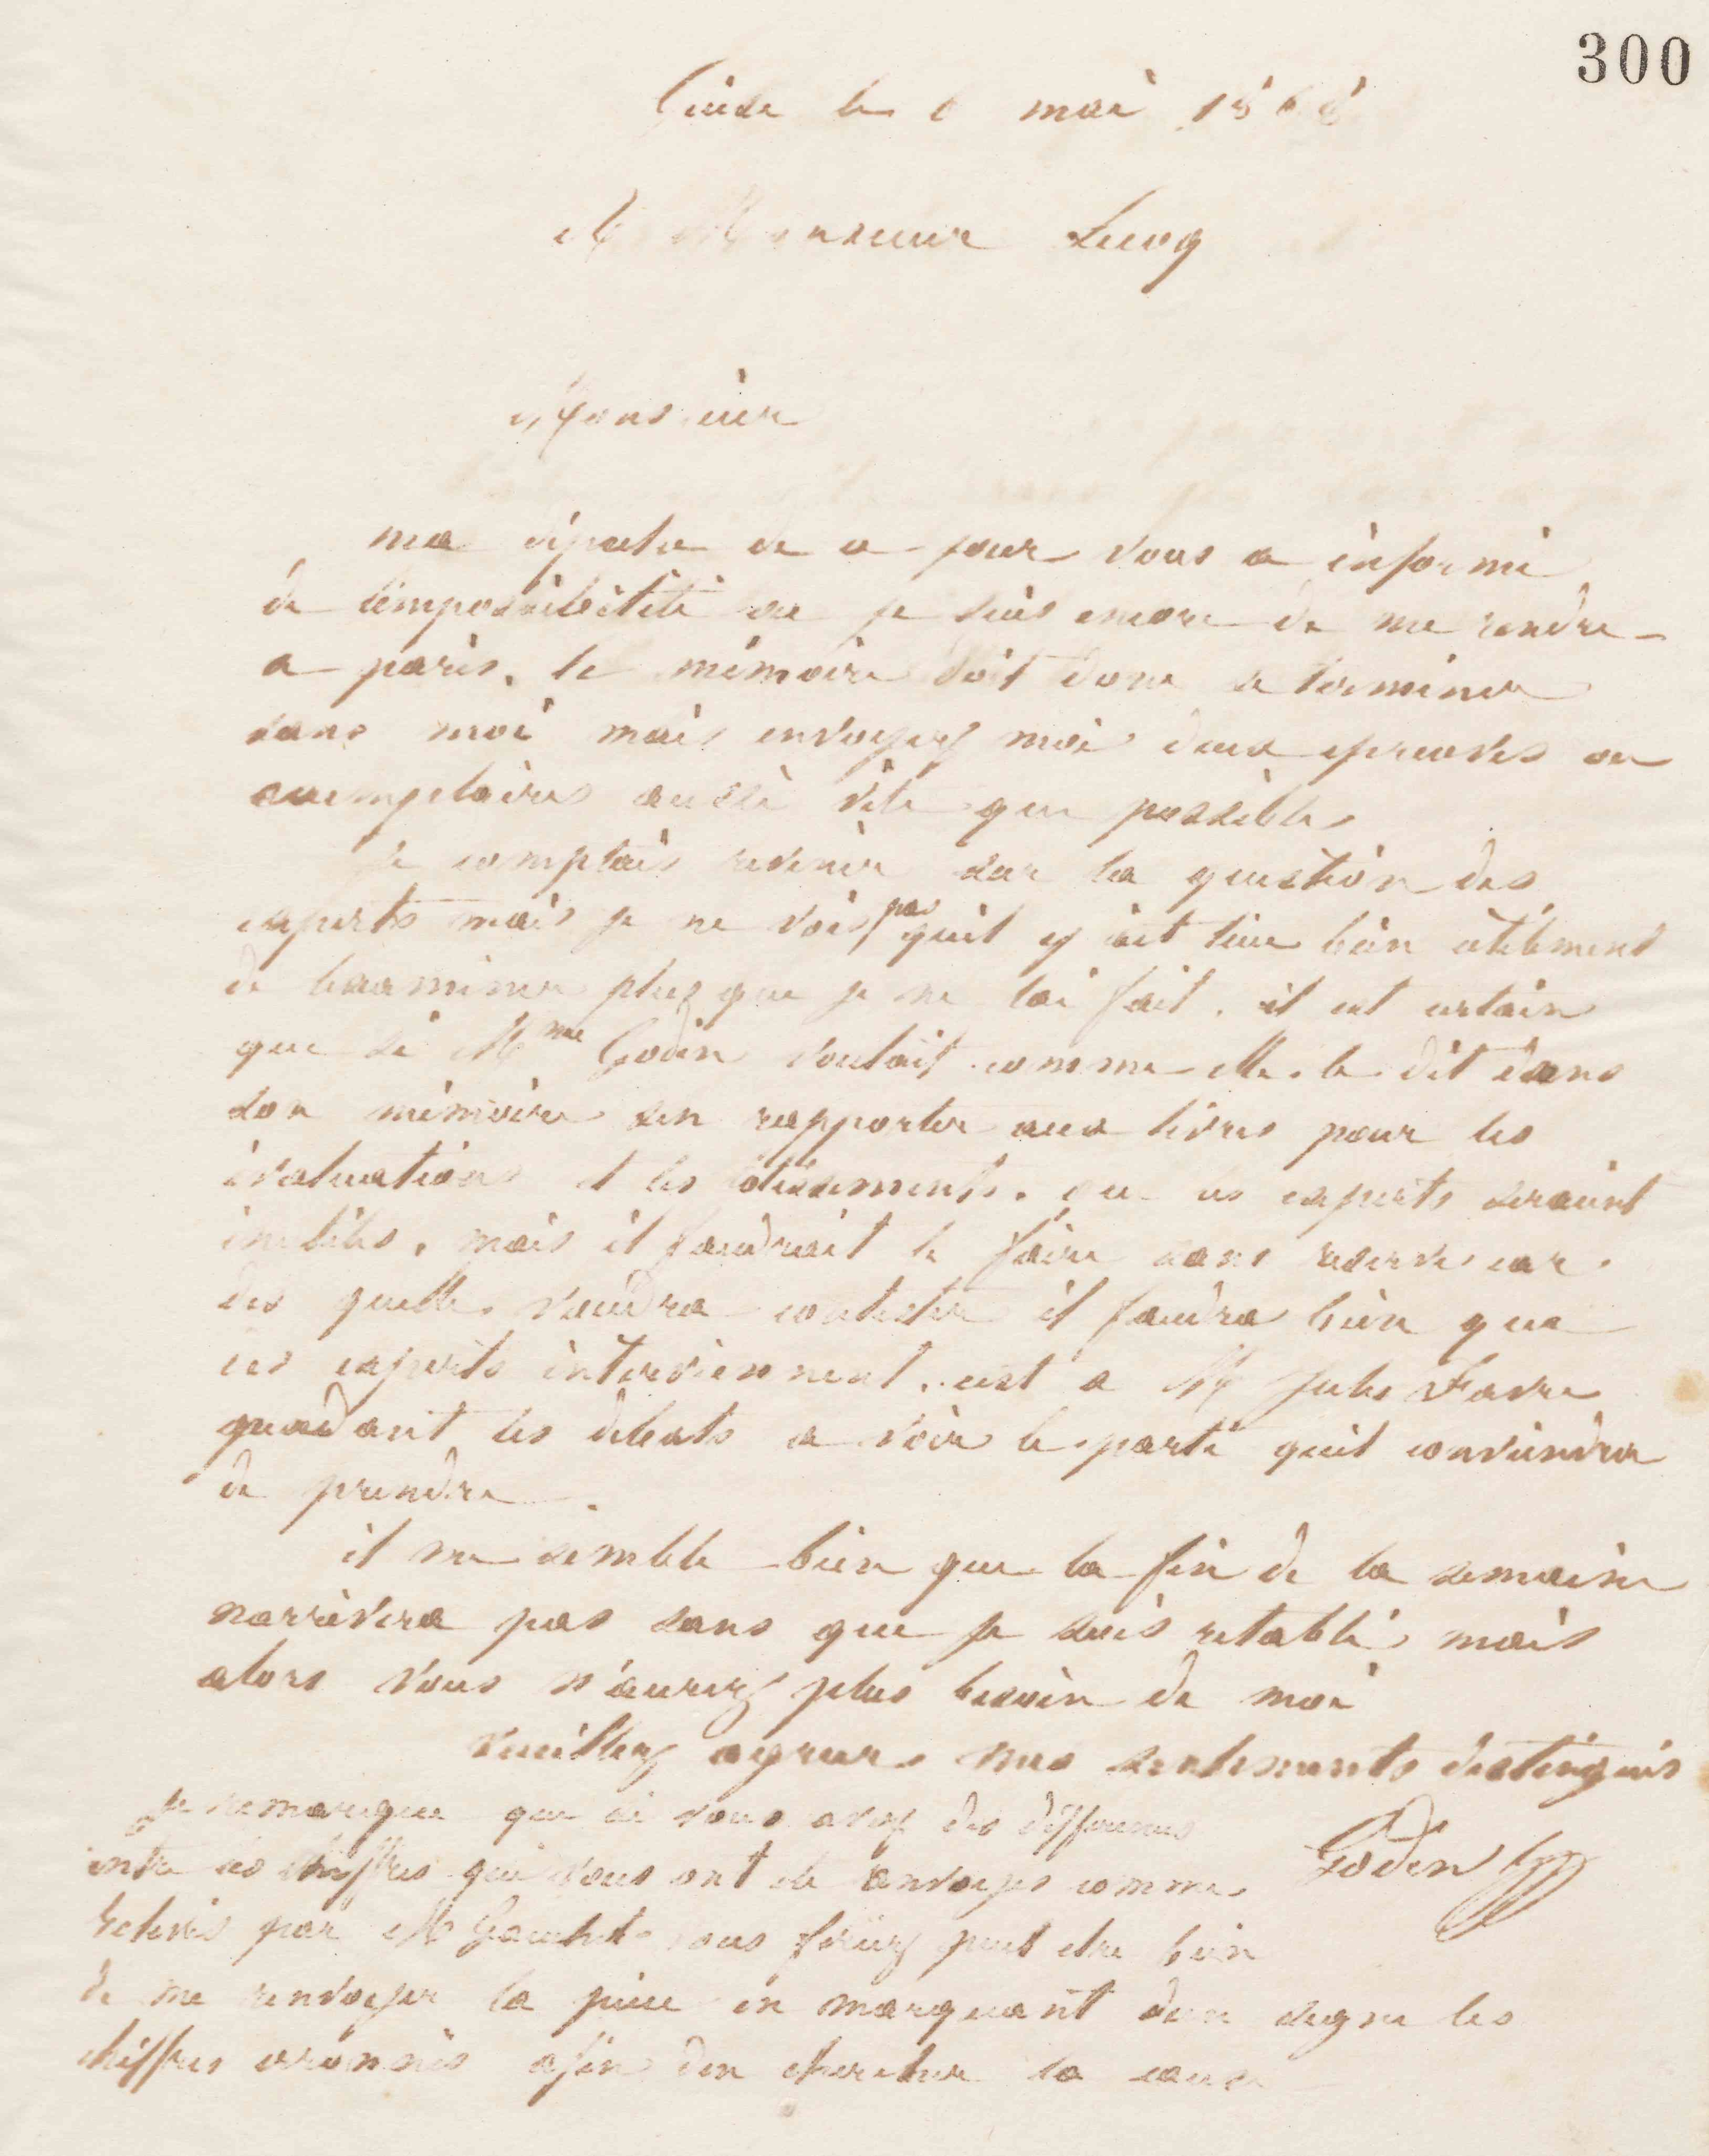 300
Guise le 6 mai 1868
A Monsieur Lecoq
Monsieur
ma dépeche de ce jour vous a informé
de limpossibilité ou je suis encore de me rendre
a paris. le mémoire doit donc se terminer
sans moi mais envoyez moi deux epreuves ou
exemplaires aussi vite que possible
Je comptais revenir sur la question des
experts mais je ne vois pas quil y ait lieu bien utilement
de lexaminer plus que je ne lai fait. il est certain
que si Mme Godin voulait comme elle le dit dans
son mémoire sen rapporter aux livres pour les
évaluations et les lotissements. que ces experts seraient
inutiles, mais il faudrait le faire sans reserves car
des quelle voudra contester il faudra bien que
ces experts interviennent. cest a M Jules Favre
les debats a voir le parti quil conviendra
de prendre.
il me semble bien que la fin de la semaine
narrivera pas sans que je sois retabli mais
alors vous n'aurez plus besoin de moi
veuillez agreer mes sentiments distingués
Je remarque que si vous avez des differences
entre les chiffres qui vous ont ete envoyes comme
relevés par M vous feriez peut etre bien
de me renvoyer la piece en marquant dun signe les
chiffres erronnés afin den chercher la cause
Godin